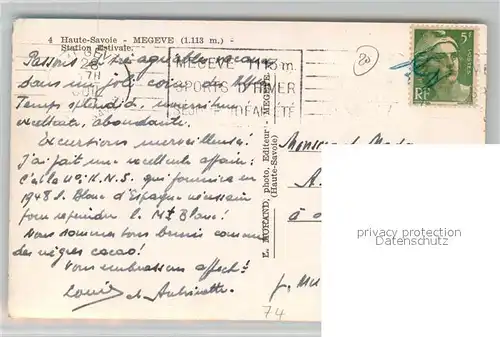 4 Haute-Savoie - MEGEVE (1.113 m.)
Station Estivale.
MEGEVE 1113 m.
SPORTS D'HIVER
20
5F
POSTES
RF
28
Passons très agréables vacances
dans un joli coin des Alpes
Temps splendide, nourriture
excellente, abondante.
Excursions merveilleuses!
J'ai fait une excellente affaire:
qui fournira en
1948 l. Blanc d'Espagne nécessaire
pour repeindre l. Mt Blanc!
Nous sommes tous brunis comme
des nègres cacao!
Vous embrassons affect!
Louis et Antoinette.
E. MORAND, photo. Editeur - MEGEVE
(Haute-Savoie)
Monsieur et Madame
A.
à
74
Privatsphäre
Datenschutz